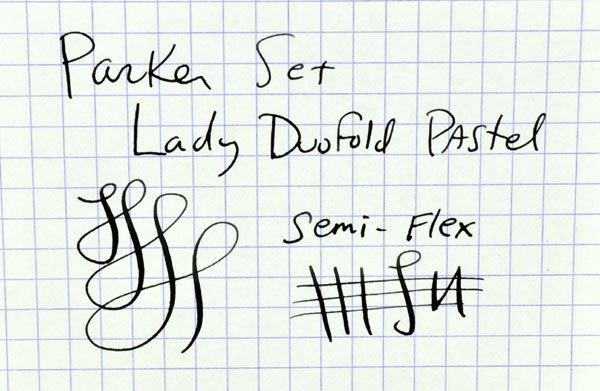 Parker Set
Lady Duofold Pastel
Semi-Flex